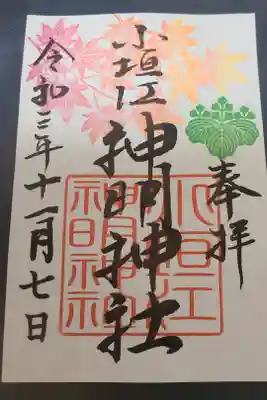 奉拝
小垣江
神明神社
小垣江
神明神社
令和三年十一月七日